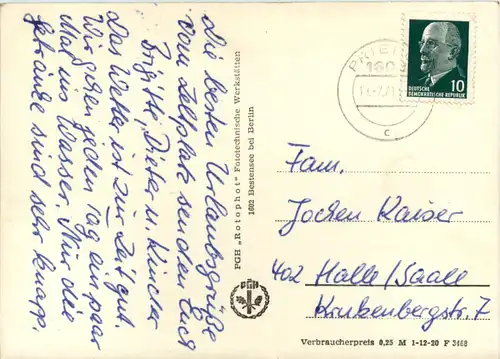 Die besten Urlaubsgrüße
vom Zeltplatz senden Euch
Brigitte, Dieter u. Kinder
Das Wetter ist zur Zeit gut.
Wir gehen jeden Tag ein paar
Mal ins Wasser. Nur die
Getränke sind sehr knapp.
PGH „Rotophot“ Fototechnische Werkstätten
1602 Bestensee bei Berlin
PRIE
160
c
DEUTSCHE
DEMOKRATISCHE REPUBLIK
10
Fam.
Jochen Kaiser
402 Halle/Saale
Krukenbergstr. 7
Verbraucherpreis 0,25 M 1-12-20 F 3468